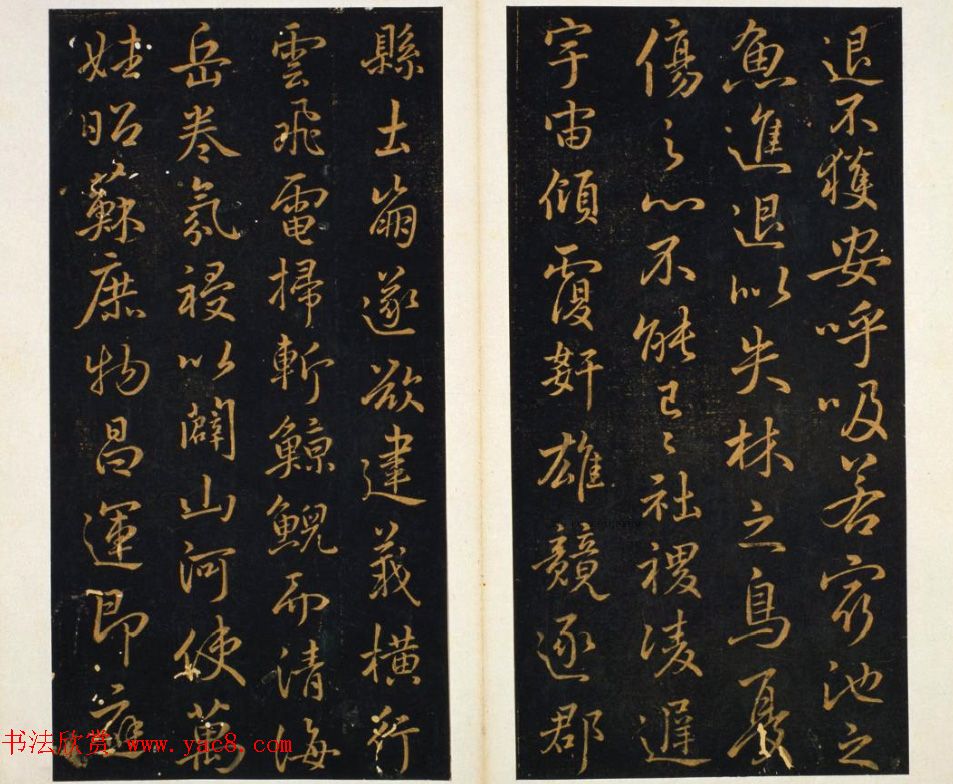 退不獲安呼吸若窮池之
魚進退以失林之鳥憂
傷之心不能已〻社稷凌遲
宇宙傾覆姧雄競逐郡
縣土崩遂欲建義橫行
雲飛電掃斬鯨鯢而清海
岳卷氛祲以闢山河使萬
姓昭蘇庶物昌運即應
书法欣赏 www.yac8.com